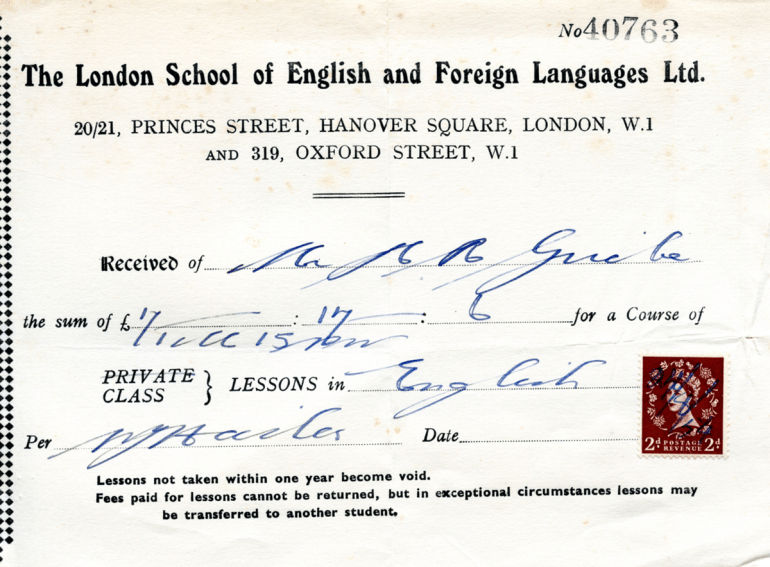 No 40763
The London School of English and Foreign Languages Ltd.
20/21, PRINCES STREET, HANOVER SQUARE, LONDON, W.1
AND 319, OXFORD STREET, W.1
Received of Mr
the sum of £ : 17 : 6 for a Course of
PRIVATE
CLASS } LESSONS in English
Per Date
2d POSTAGE REVENUE 2d
Lessons not taken within one year become void.
Fees paid for lessons cannot be returned, but in exceptional circumstances lessons may
be transferred to another student.